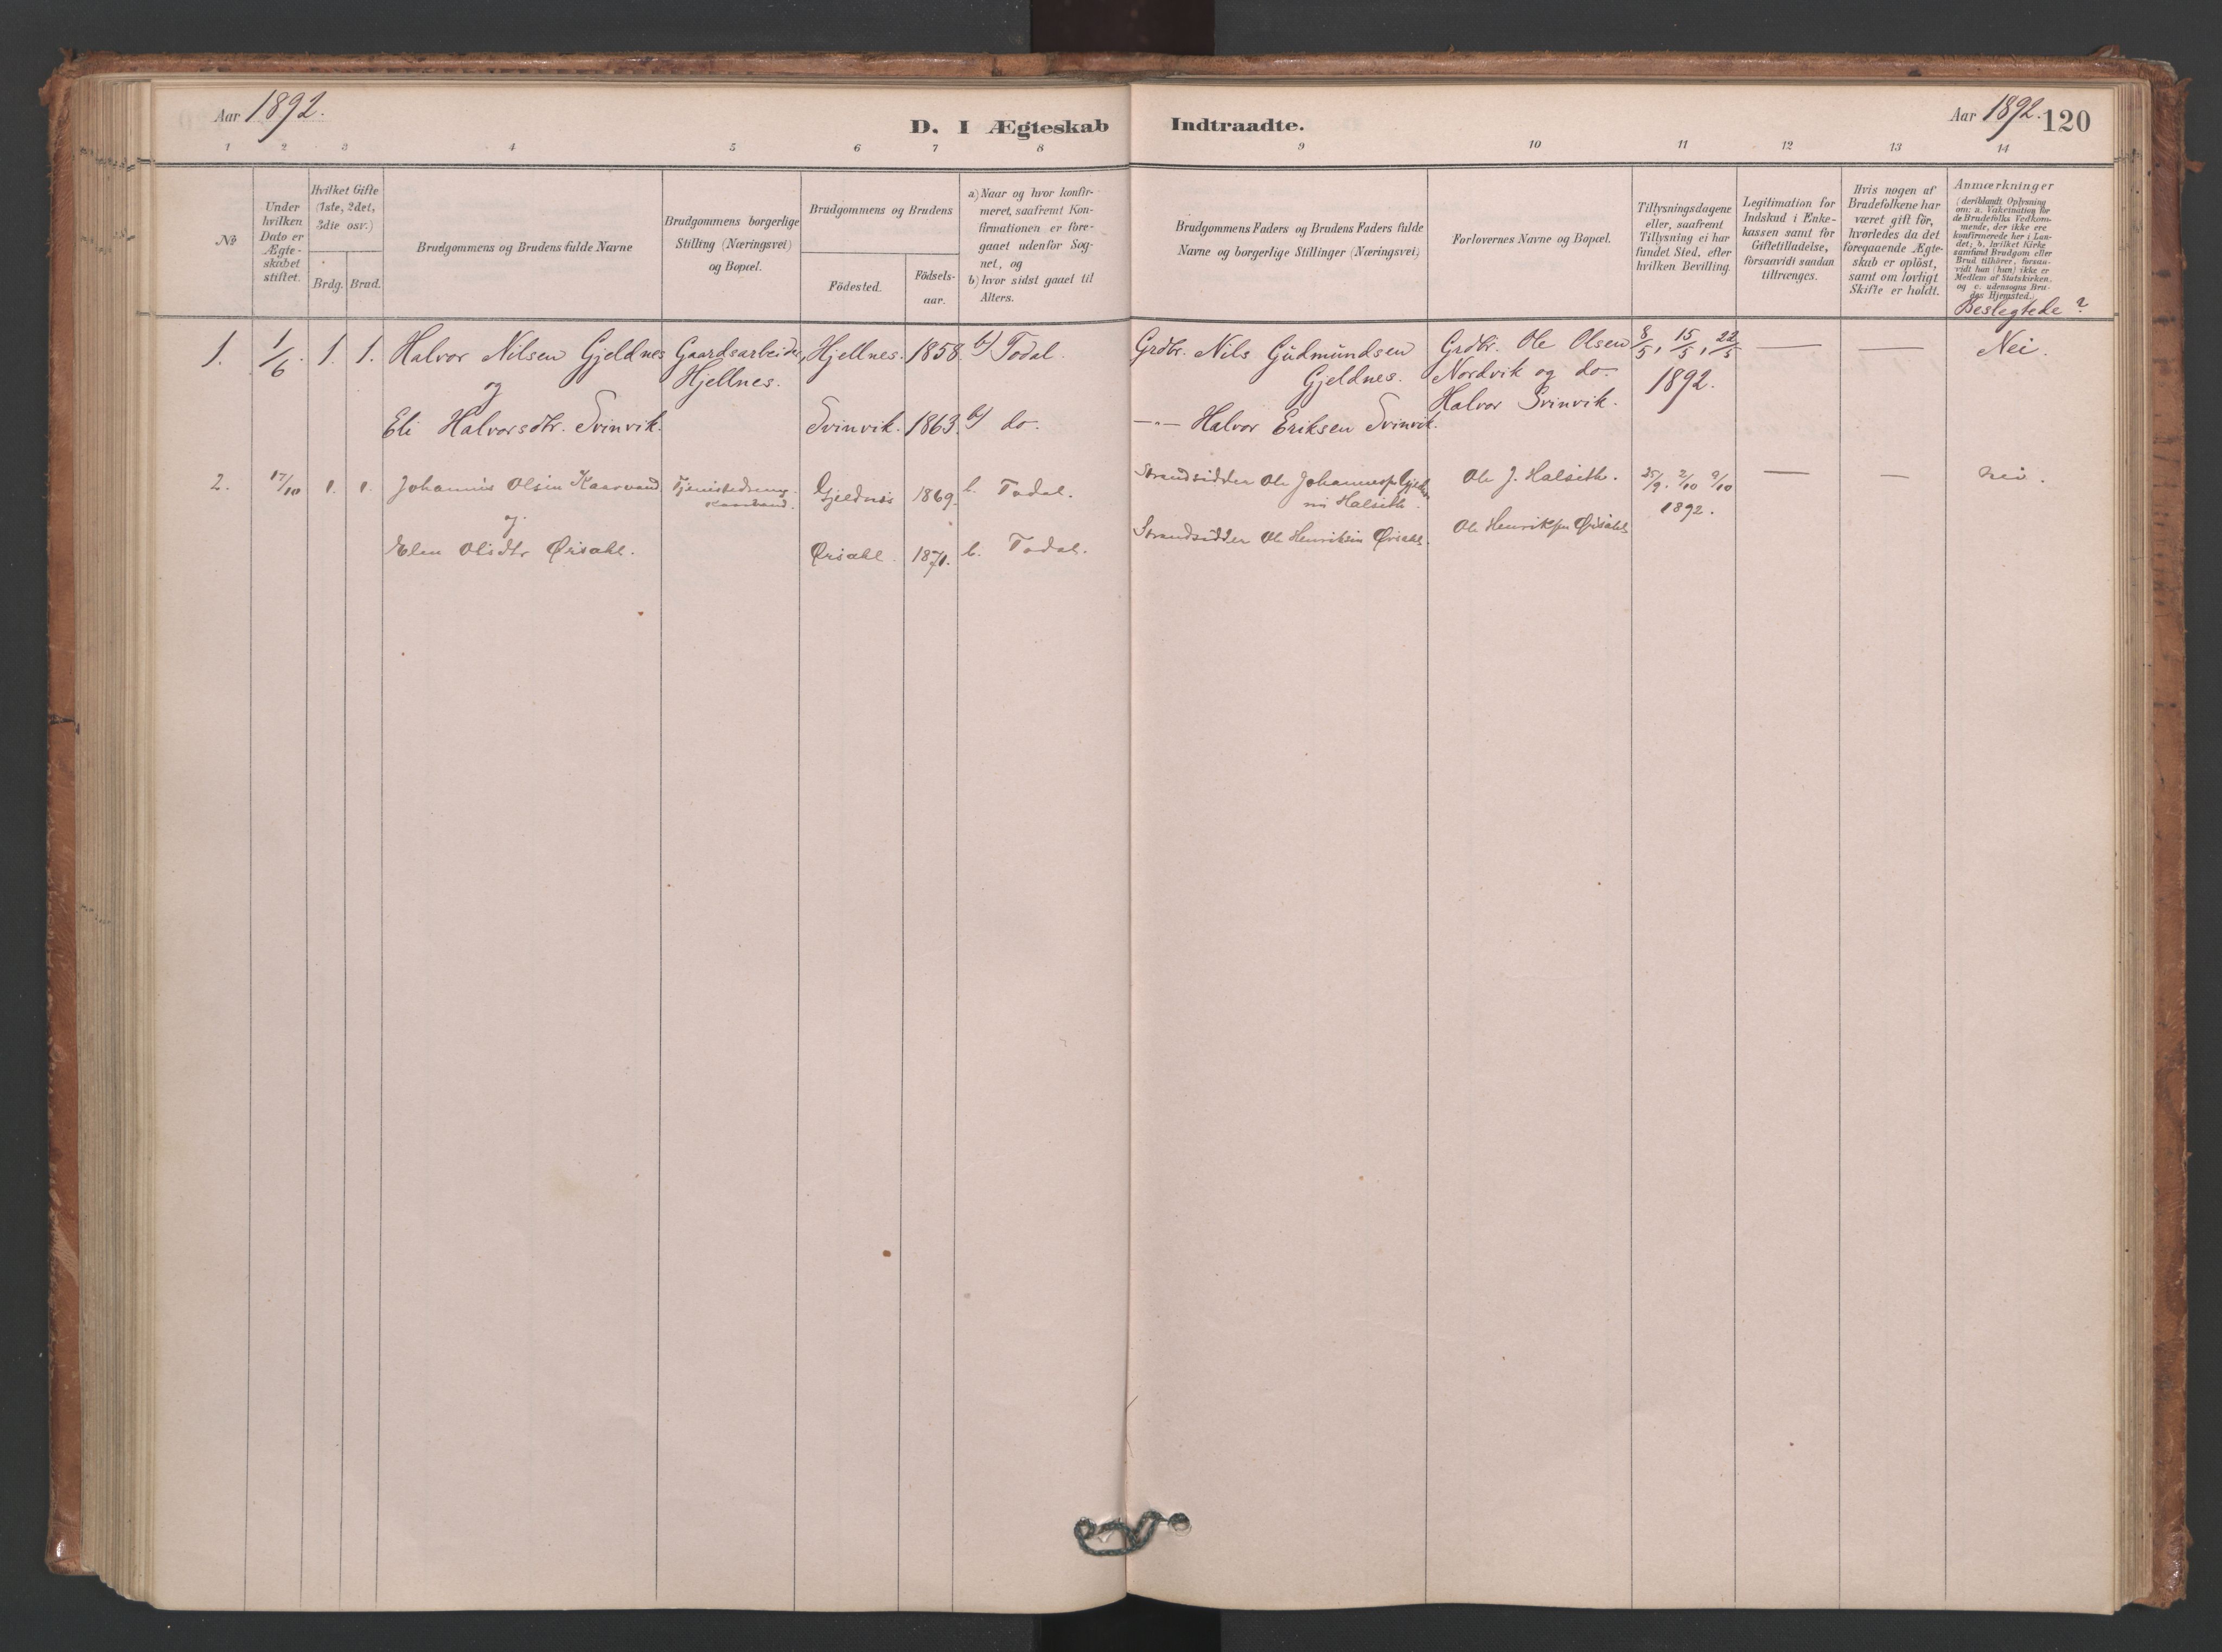 Aar 1892.
D. I Ægteskab Indtraadte.
Aar 1892. 120
1 2 3 4 5 6 7 8 9 10 11 12 13 14
No
Under hvilken Dato er Ægte-skabet stiftet.
Hvilket Gifte (1ste, 2det, 3die osv.)
Brdg. Brud.
Brudgommens og Brudens fulde Navne
Brudgommens borgerlige Stilling (Næringsvei) og Bopæl.
Brudgommens og Brudens
Födested.
Födsels-aar.
a) Naar og hvor konfir-meret, saafremt Kon-firmationen er fore-gaaet udenfor Sog-net, og
b) hvor sidst gaaet til Alters.
Brudgommens Faders og Brudens Faders fulde Navne og borgerlige Stillinger (Næringsvei)
Forlovernes Navne og Bopæl.
Tillysningsdagene eller, saafremt Tillysning ei har fundet Sted, efter hvilken Bevilling.
Legitimation for Indskud i Enke-kassen samt for Giftetilladelse, forsaavidt saadan tiltrænges.
Hvis nogen af Brudefolkene har været gift för, hvorledes da det foregaaende Ægte-skab er oplöst, samt om lovligt Skifte er holdt.
Anmærkninger (deriblandt Oplysning om: a. Vakcination for de Brudefolks Vedkom-mende, der ikke ere konfirmerede her i Lan-det; b. hvilket Kirke-samfund Brudgom eller Brud tilhörer, forsaa-vidt han (hun) ikke er Medlem af Statskirken, og c. udensogns Bru-des Hjemsted.)
Beslegtede?
1. 1/6. 1. 1. Halvor Nilsen Gjeldnes Gaardsarbeider, Hjellnes. 1858 b) Todal. Grdbr. Nils Gudmundsen Grdbr. Ole Olsen 8/5, 15/5, 22/5 — — Nei.
og Hjellnes. Gjeldnes. Nordvik og do 1892.
Halvor Svinvik.
Eli Halvorsdtr. Svinvik. Svinvik. 1863. b) do. —"— Halvor Eriksen Svinvik.
2. 17/10 1. 1. Johannes Olsen Kaarvand Gjeldnes 1869. b. Todal. Strandsidder Ole Johannesen Ole J. Halseth. 25/9. 2/10 9/10 — — nei.
og Kaarvand. Halseth. 1892.
Elen Olsdtr Ørsahl. Ørsahl. 1871. b. Todal. Strandsidder Ole Henriksen Ørsahl. Ole Henriksen Ørsahl